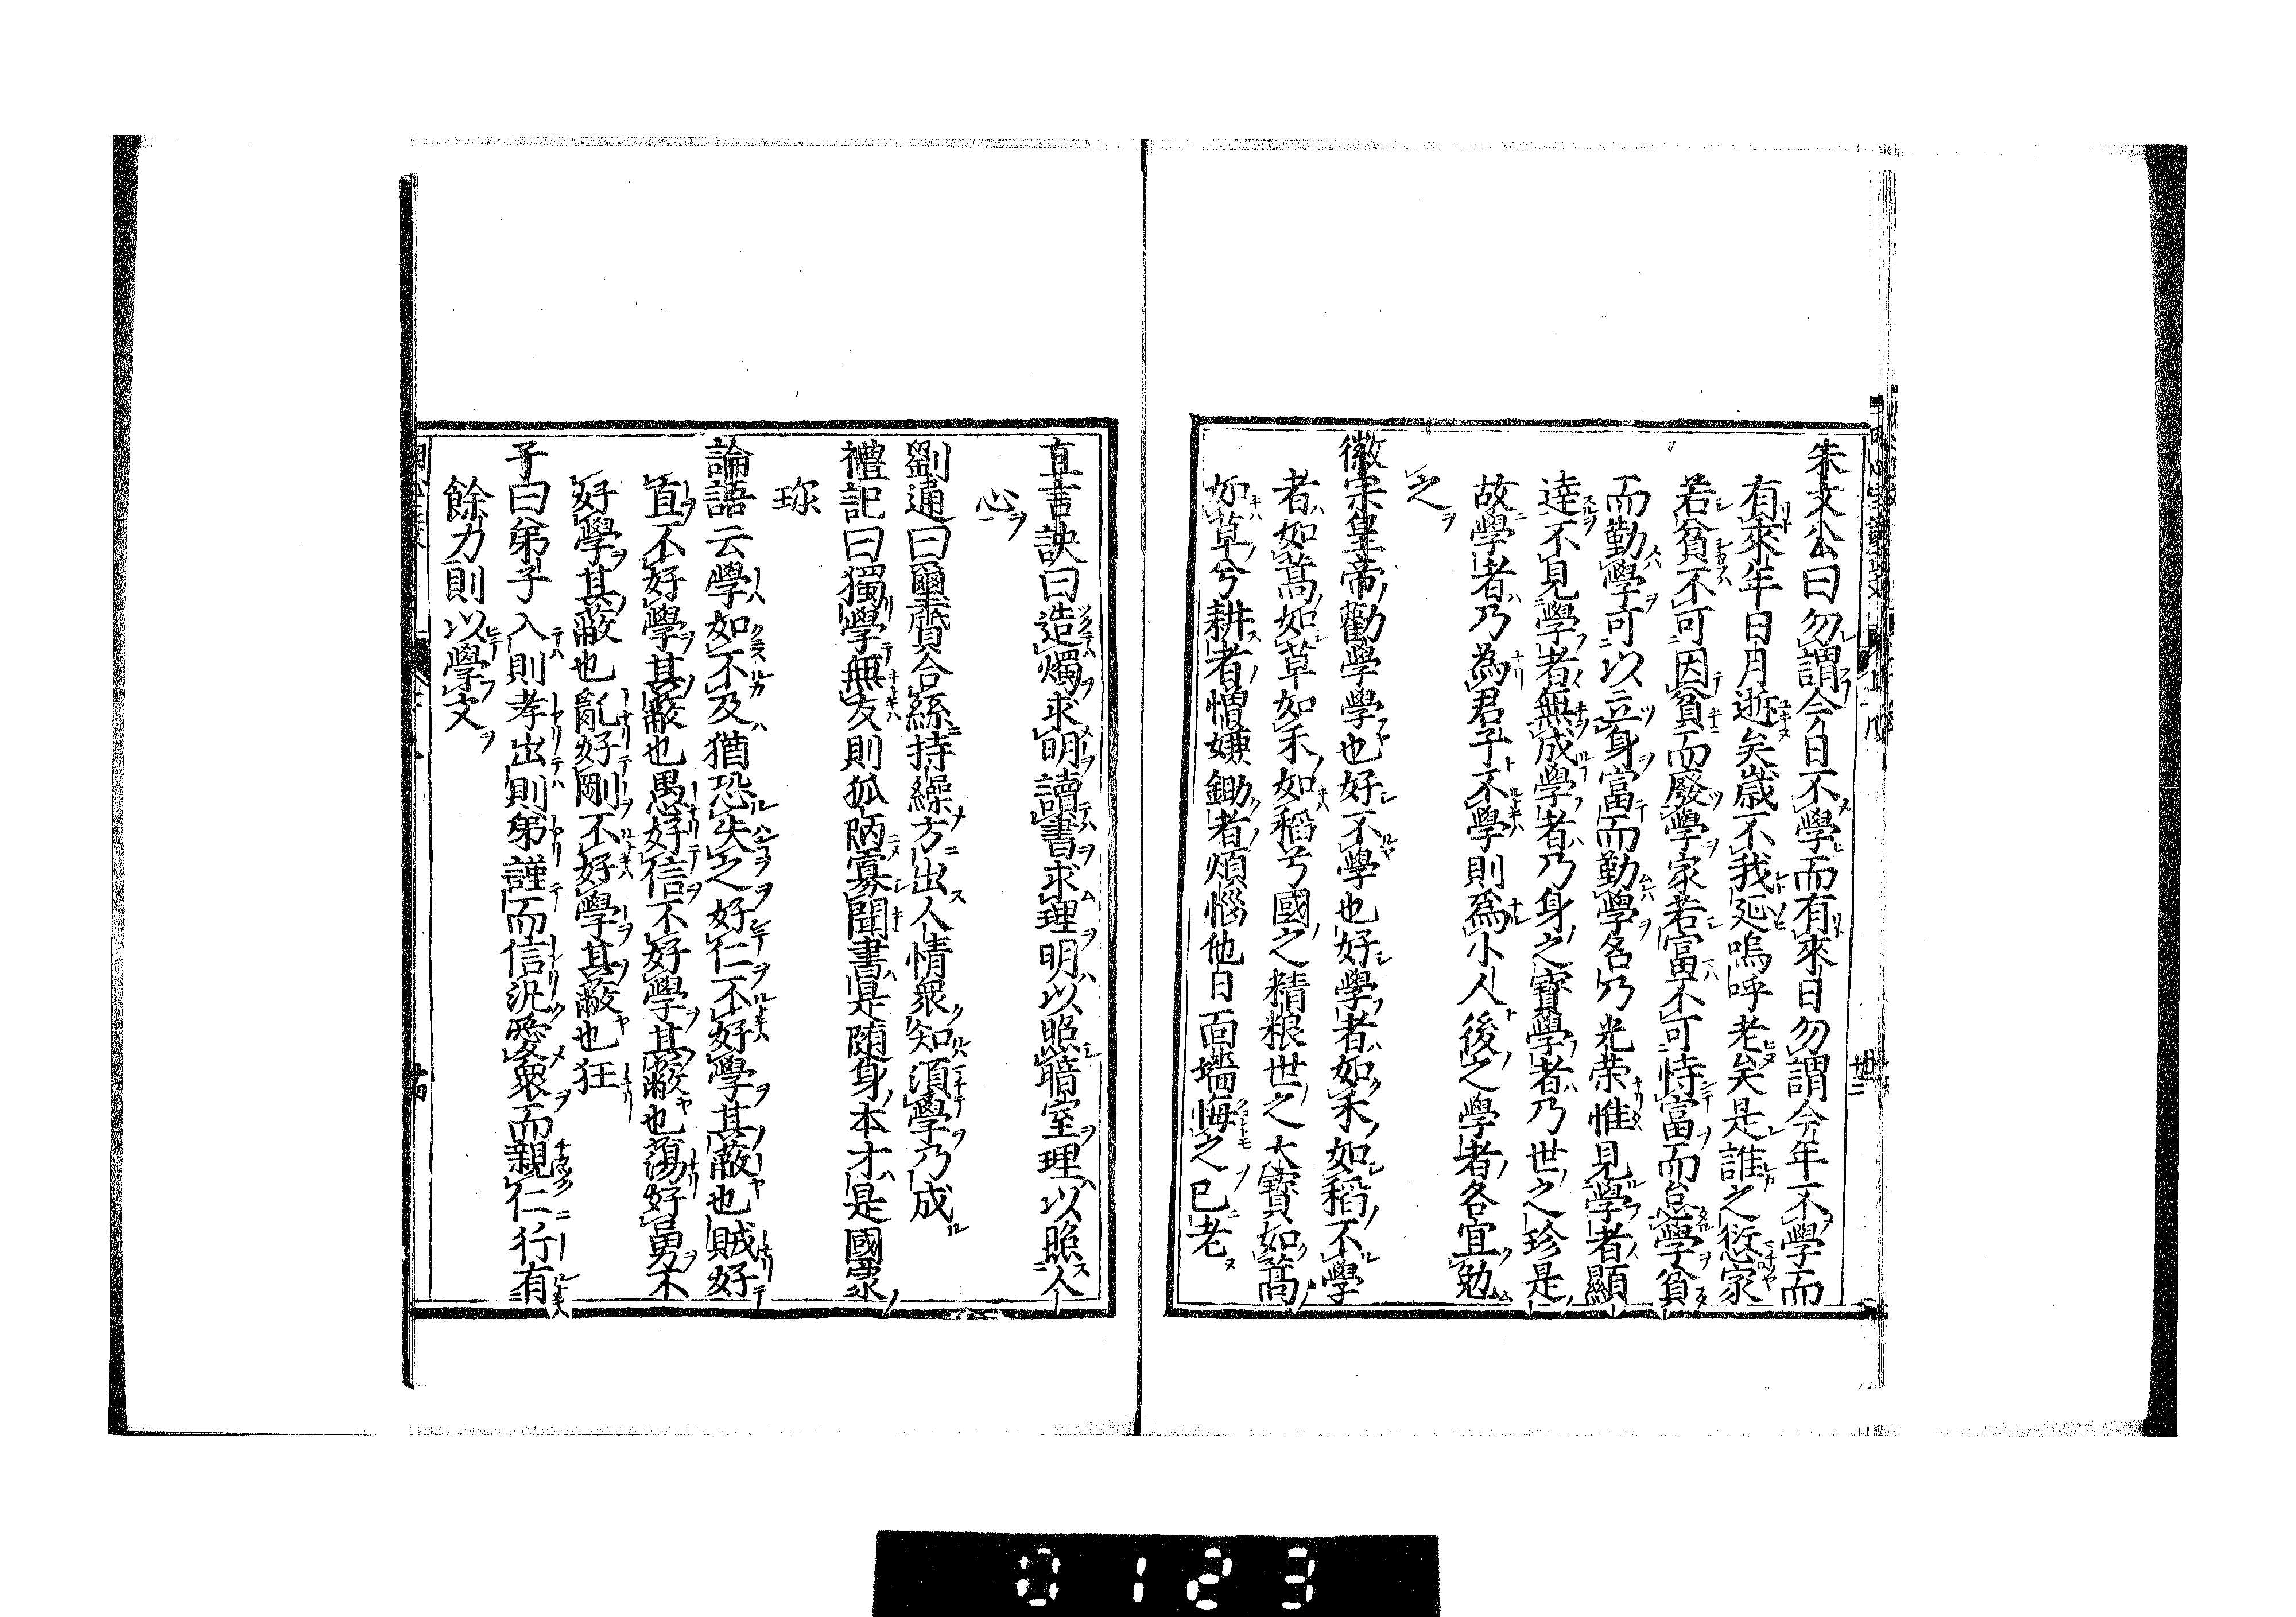 朱文公曰勿謂今日不學而有來日勿謂今年不學而
有來年日月逝矣歳不我延嗚呼老矣是誰之愆家
若貧不可因貧而廢學家若富不可恃富而怠學貧
而勤學可以立身富而勤學名乃光荣惟見學者顯
達不見學者無成學者乃身之寶學者乃世之珍是
故學者乃為君子不學則爲小人後之學者各宜勉
之
徽宗皇帝勸學學也好不學也好學者如禾如稻不學
者如蒿如草如禾如稻兮國之精粮世之大寶如蒿
如草兮耕者憎嫌鋤者煩惱他日面墻悔之已老
直言訣曰造燭求明讀書求理明以照暗室理以照人
心
劉通曰璽賣合絲持繰方出人情衆知須學乃成
禮記曰獨學無友則狐陋寡聞書是随身本才是國家
珎
論語云學如不及猶恐失之好仁不好學其蔽也賊好
直不好學其蔽也愚好信不好學其蔽也蕩好勇不
好學其蔽也亂好剛不好學其蔽也狂
子曰弟子入則孝出則弟謹而信汎愛衆而親仁行有
餘力則以學文
0123